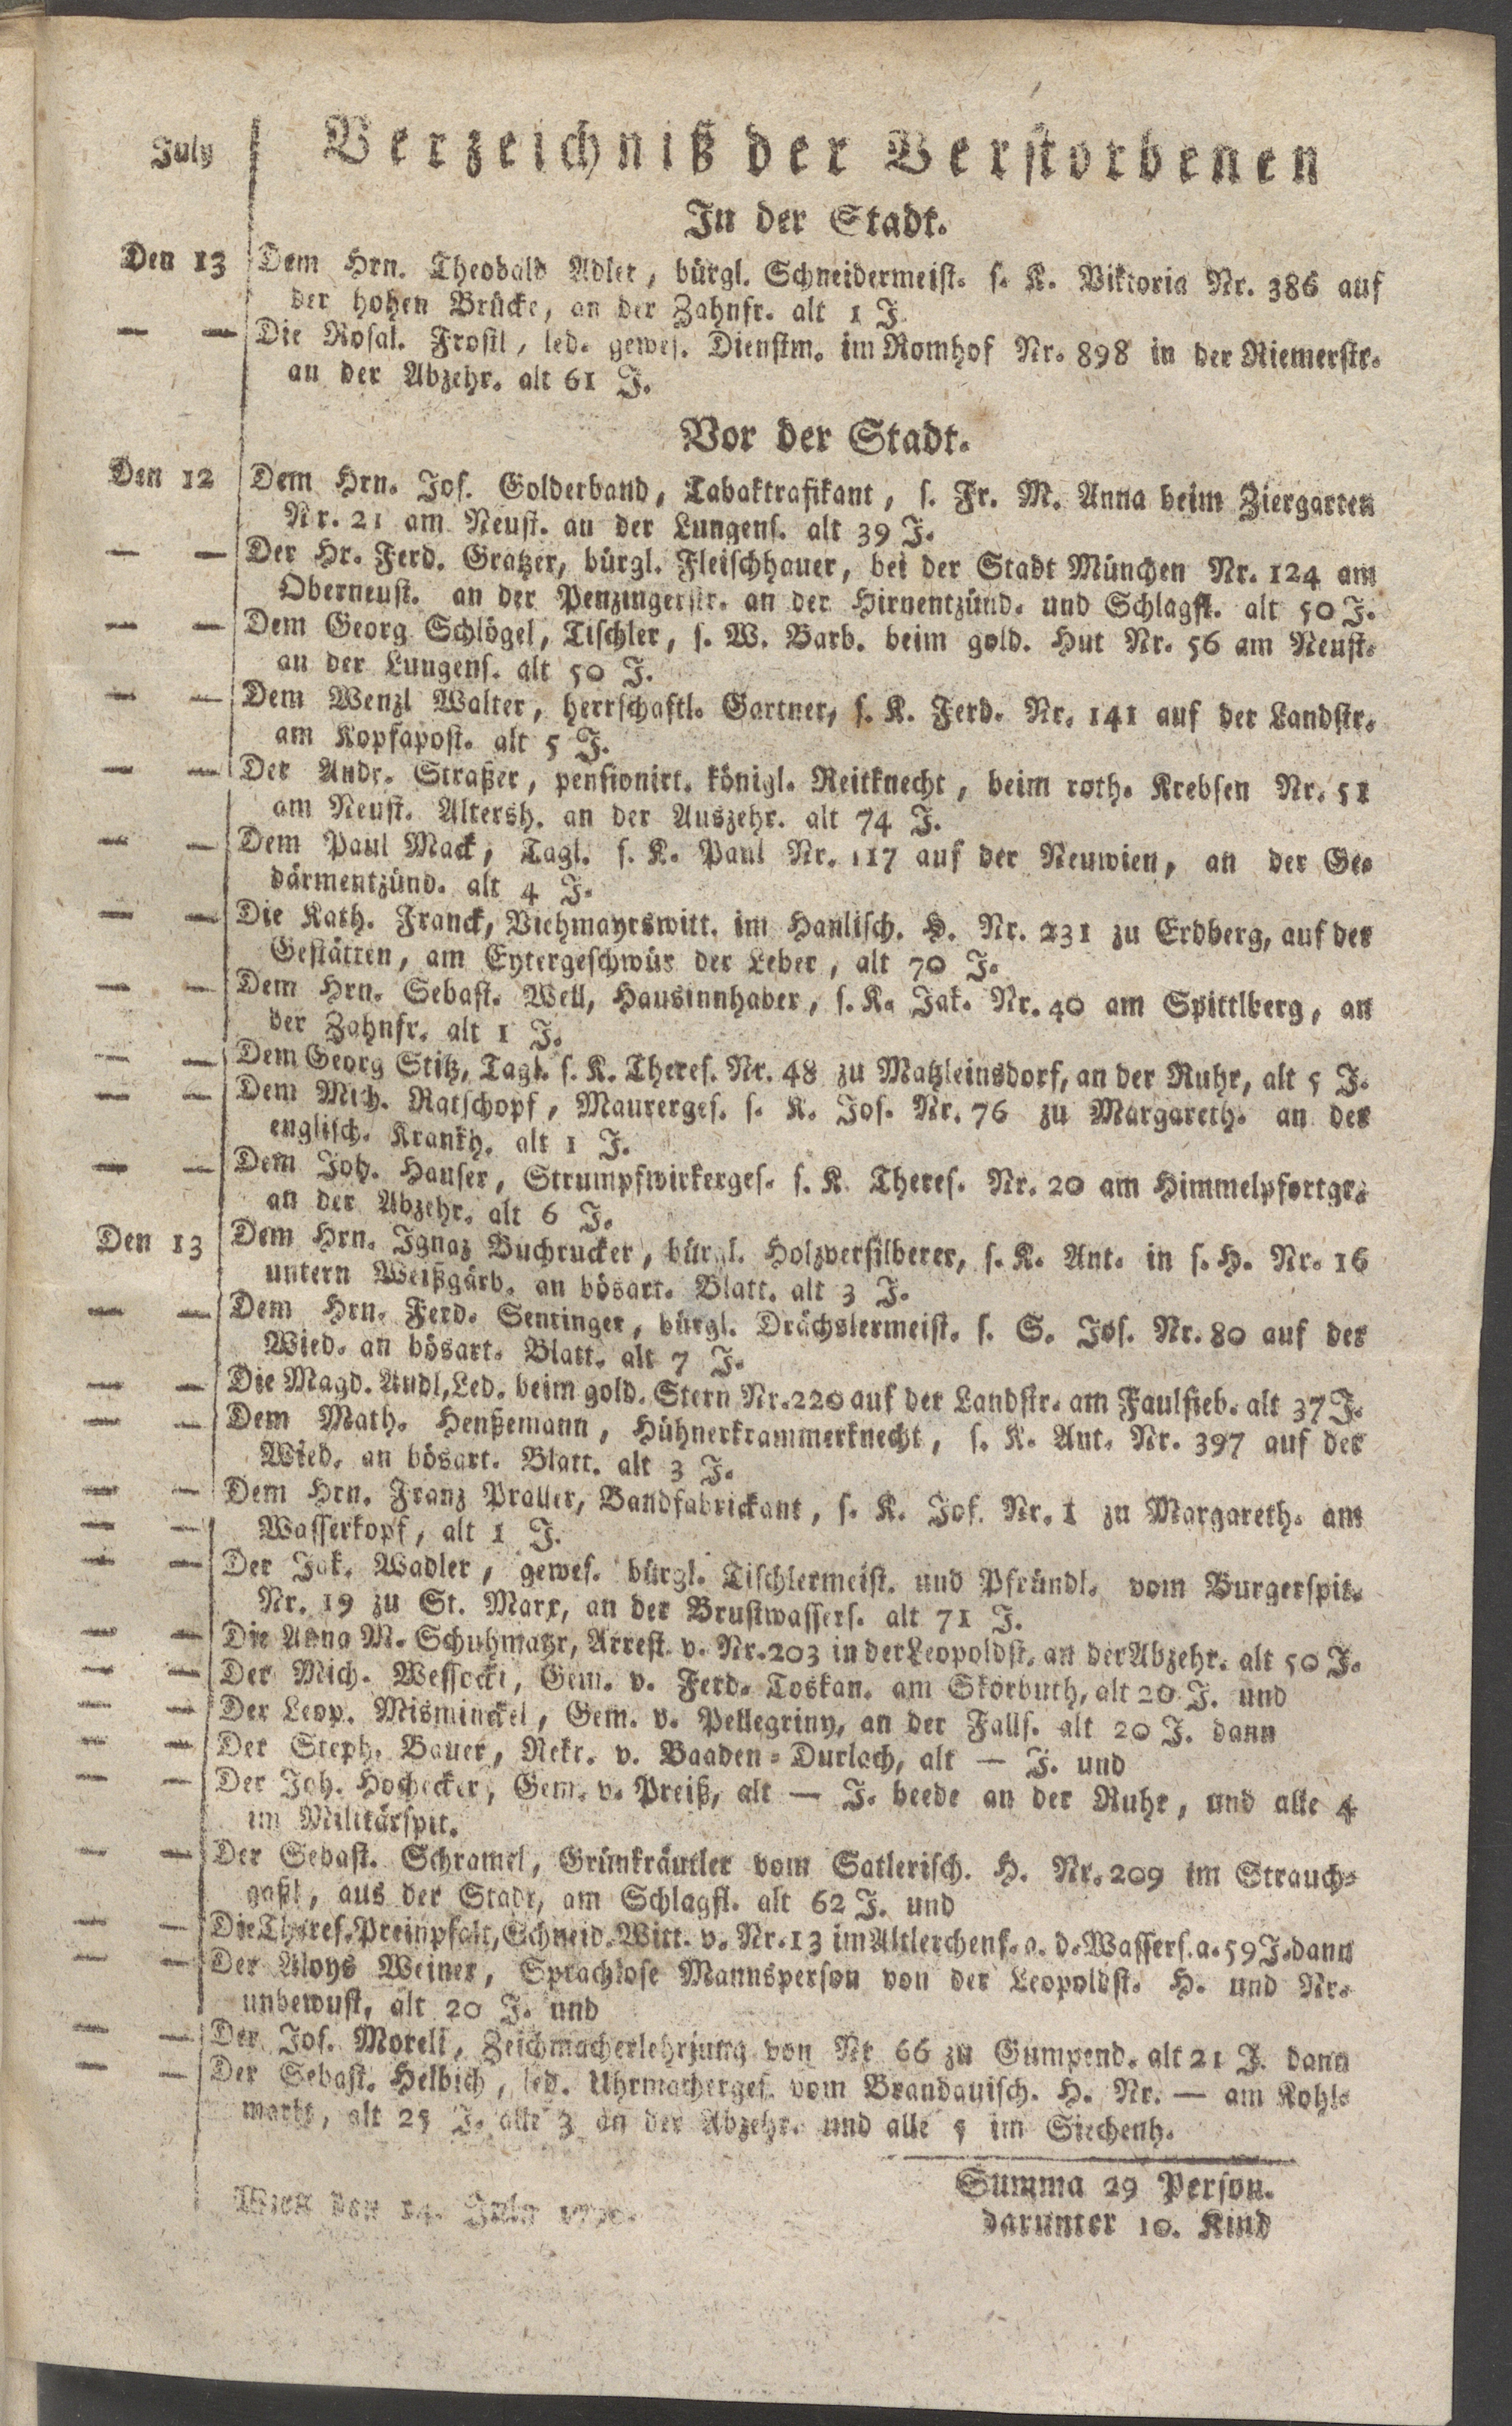 July
Verzeichniß der Verstorbenen
In der Stadt.
Den 13 Dem Hrn. Theobald Adler, bürgl. Schneidermeist. s. K. Viktoria Nr. 386 auf
der hohen Brücke, an der Zahnfr. alt 1 J.
— — Die Rosal. Frostl, led. gewes. Dienstm. im Romhof Nr. 898 in der Riemerstr.
an der Abzehr. alt 61 J.
Vor der Stadt.
Den 12 Dem Hrn. Jos. Golderband, Tabaktrafikant, s. Fr. M. Anna beim Ziergarten
Nr. 21 am Neust. an der Lungens. alt 39 J.
— — Der Hr. Ferd. Gratzer, bürgl. Fleischhauer, bei der Stadt München Nr. 124 am
Oberneust. an der Penzingerstr. an der Hirnentzünd. und Schlagfl. alt 50 J.
— — Dem Georg Schlögel, Tischler, s. W. Barb. beim gold. Hut Nr. 56 am Neust.
an der Lungens. alt 50 J.
— — Dem Wenzl Walter, herrschaftl. Gartner, s. K. Ferd. Nr. 141 auf der Landstr.
am Kopfapost. alt 5 J.
— — Der Andr. Straßer, pensionirt. königl. Reitknecht, beim roth. Krebsen Nr. 51
am Neust. Altersh. an der Auszehr. alt 74 J.
— — Dem Paul Mack, Tagl. s. K. Paul Nr. 117 auf der Neuwien, an der Ge-
därmentzünd. alt 4 J.
— — Die Kath. Franck, Viehmayrswitt. im Hanlisch. H. Nr. 231 zu Erdberg, auf der
Gestätten, am Eytergeschwür der Leber, alt 70 J.
— — Dem Hrn. Sebast. Well, Hausinnhaber, s. K. Jak. Nr. 40 am Spittlberg, an
der Zahnfr. alt 1 J.
— — Dem Georg Stitz, Tagl. s. K. Theres. Nr. 48 zu Matzleinsdorf, an der Ruhr, alt 5 J.
— — Dem Mich. Ratschopf, Maurerges. s. K. Jos. Nr. 76 zu Margareth. an der
englisch. Krankh. alt 1 J.
— — Dem Joh. Hauser, Strumpfwirkerges. s. K. Theres. Nr. 20 am Himmelpfortgr.
an der Abzehr. alt 6 J.
Den 13 Dem Hrn. Ignaz Buchrucker, bürgl. Holzversilberer, s. K. Ant. in s. H. Nr. 16
untern Weißgärb. an bösart. Blatt. alt 3 J.
— — Dem Hrn. Ferd. Sentinger, bürgl. Drächslermeist. s. S. Jos. Nr. 80 auf der
Wied. an bösart. Blatt. alt 7 J.
— — Die Magd. Andl, Led. beim gold. Stern Nr. 220 auf der Landstr. am Faulfieb. alt 37 J.
— — Dem Math. Henßemann, Hühnerkrammerknecht, s. K. Ant. Nr. 397 auf der
Wied. an bösart. Blatt. alt 3 J.
— — Dem Hrn. Franz Praller, Bandfabrickant, s. K. Jos. Nr. 1 zu Margareth. am
— — Wasserkopf, alt 1 J.
— — Der Jak. Wadler, gewes. bürgl. Tischlermeist. und Pfründl. vom Burgerspit.
Nr. 19 zu St. Marx, an der Brustwassers. alt 71 J.
— — Die Anna M. Schuhmatzr, Arrest. v. Nr. 203 in der Leopoldst. an der Abzehr. alt 50 J.
— — Der Mich. Wessocki, Gem. v. Ferd. Toskan. am Skorbuth, alt 20 J. und
— — Der Leop. Misminckel, Gem. v. Pellegriny, an der Falls. alt 20 J. dann
— — Der Steph. Bauer, Rekr. v. Baaden-Durlach, alt — J. und
— — Der Joh. Hochecker, Gem. v. Preiß, alt — J. beede an der Ruhr, und alle 4
im Militärspit.
— — Der Sebast. Schramel, Grünkräutler vom Satlerisch. H. Nr. 209 im Strauch-
gaßl, aus der Stadt, am Schlagfl. alt 62 J. und
— — Die Theres. Preinpfalt, Schneid. Witt. v. Nr. 13 im Altlerchenf. a. d. Wassers. a. 59 J. dann
— — Der Aloys Weiner, Sprachlose Mannsperson von der Leopoldst. H. und Nr.
unbewust, alt 20 J. und
— — Der Jos. Morell, Zeichmacherlehrjung von Nr 66 zu Gumpend. alt 21 J. dann
— — Der Sebast. Helbich, led. Uhrmacherges. vom Brandauisch. H. Nr. — am Kohl-
markt, alt 25 J. alle 3 an der Abzehr. und alle 5 im Siechenh.
Summa 29 Person.
darunter 10. Kind
Wien den 14. July